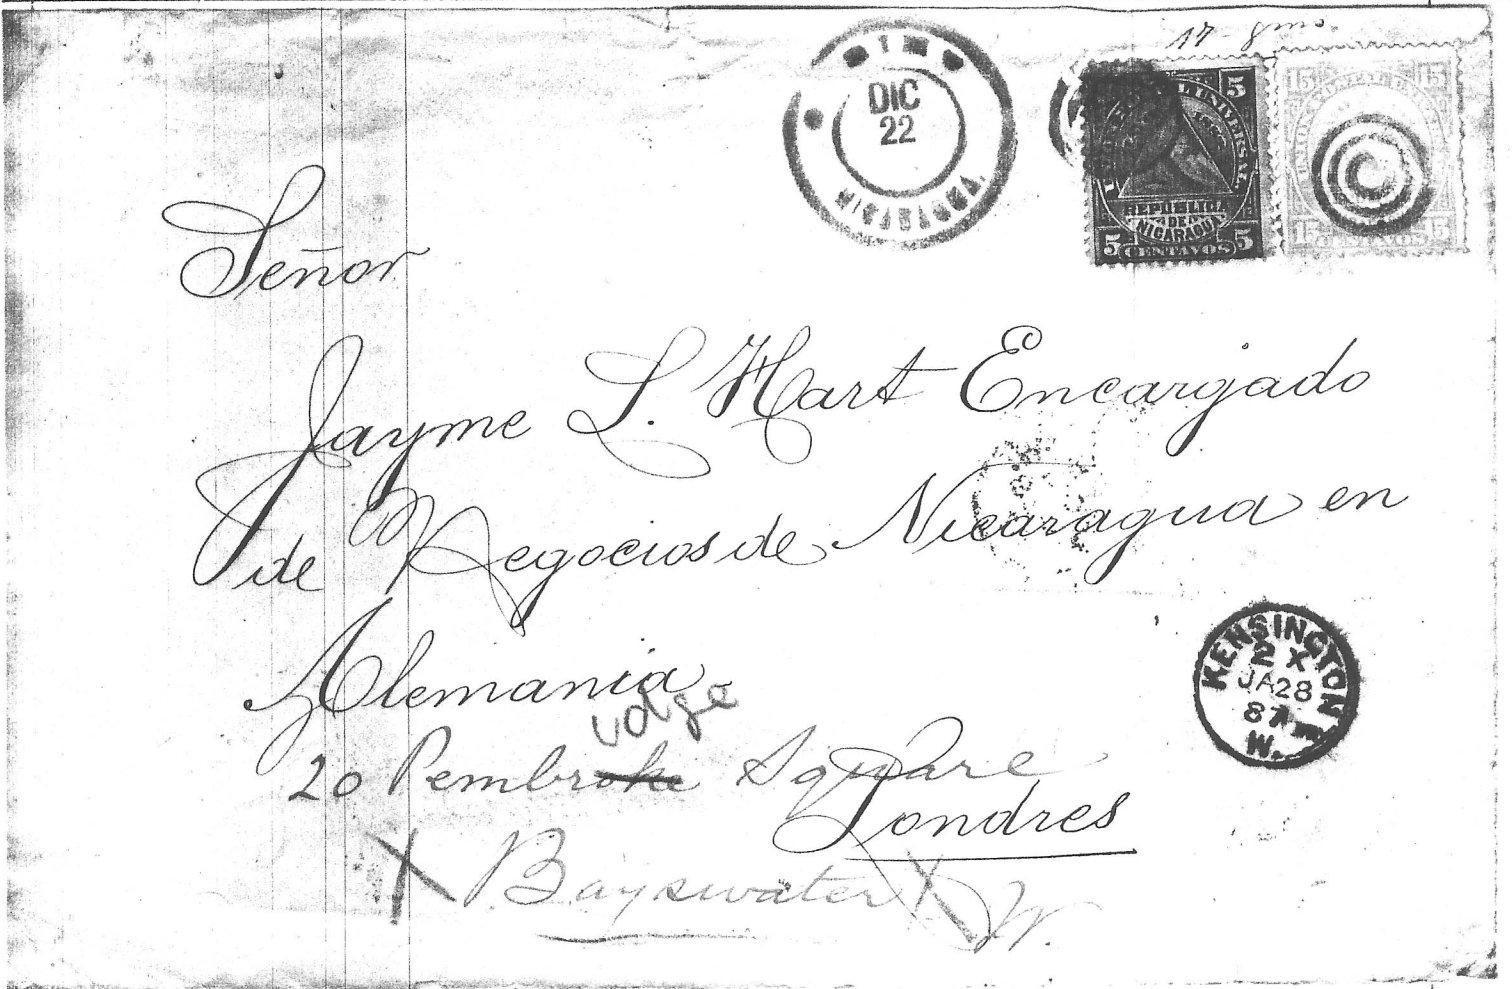 17 - 8
1
DIC
22
NICARAGUA.
UNION POSTAL UNIVERSAL
1882
5
REPUBLICA
DE
NICARAGUA
5 CENTAVOS 5
15 15
15 CENTAVOS 15
Señor
Jayme L. Hart Encargado
de Negocios de Nicaragua en
Alemania
idge
20 Pembroke Square
Londres
X Bayswater X W.
KENSINGTON
2 X
JA 28
87
W.